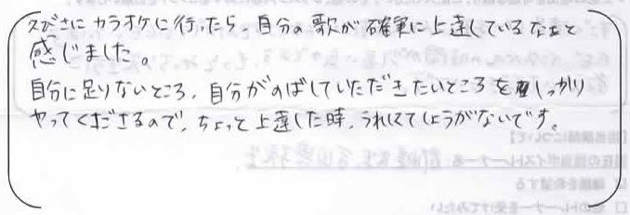 久びさに カラオケに行ったら、自分の歌が確実に上達しているなぁと
感じました。
自分に足りないところ、自分がのばしていただきたいところを しっかり
やってくださるので、ちょっと上達した時、うれしくてしょうがないです。